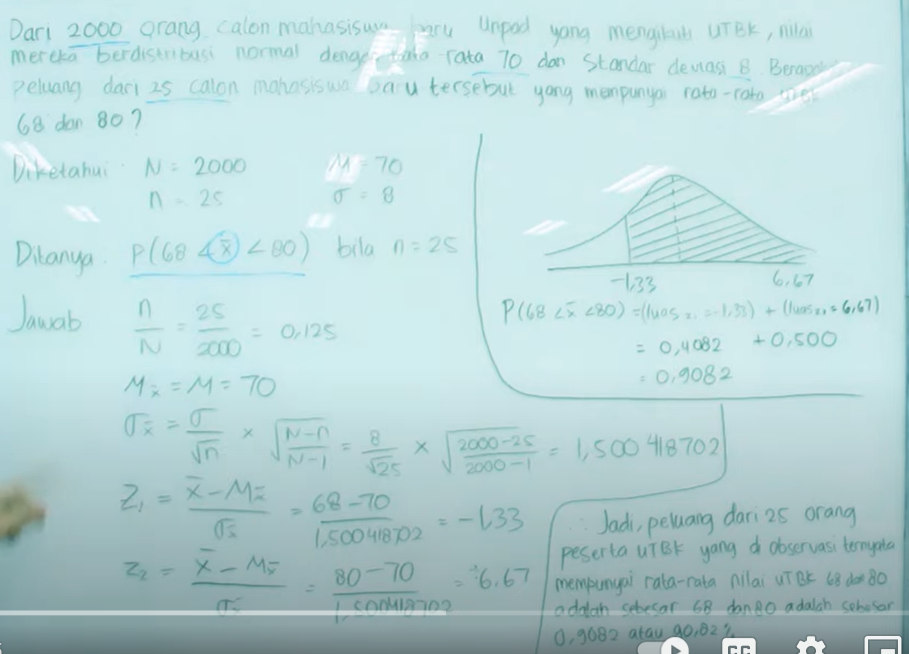 Dari 2000 orang calon mahasiswa baru Unpad yang mengikuti UTBK, nilai
mereka berdistribusi normal dengan rata-rata 70 dan standar deviasi 8. Berapakah
peluang dari 25 calon mahasiswa baru tersebut yang mempunyai rata-rata
68 dan 80?
Diketahui: N = 2000 M = 70
n = 25 σ = 8
Ditanya. P(68 < x̄ < 80) bila n = 25
Jawab n/N = 25/2000 = 0,125
Mx̄ = M = 70
σx̄ = σ/√n × √(N-n/N-1) = 8/√25 × √(2000-25/2000-1) = 1,500418702
Z₁ = x̄ - Mx̄/σx̄ = 68-70/1,500418702 = -1,33
Z₂ = x̄ - Mx̄/σx̄ = 80-70/1,500418702 = 6.67
-1,33 6,67
P(68 < x̄ < 80) = (luas z₁ = -1,33) + (luas z₂ = 6,67)
= 0,4082 + 0,500
= 0,9082
∴ Jadi, peluang dari 25 orang
peserta UTBK yang di observasi ternyata
mempunyai rata-rata nilai UTBK 68 dan 80
adalah sebesar 68 dan 80 adalah sebesar
0,9082 atau 90,82%
CC